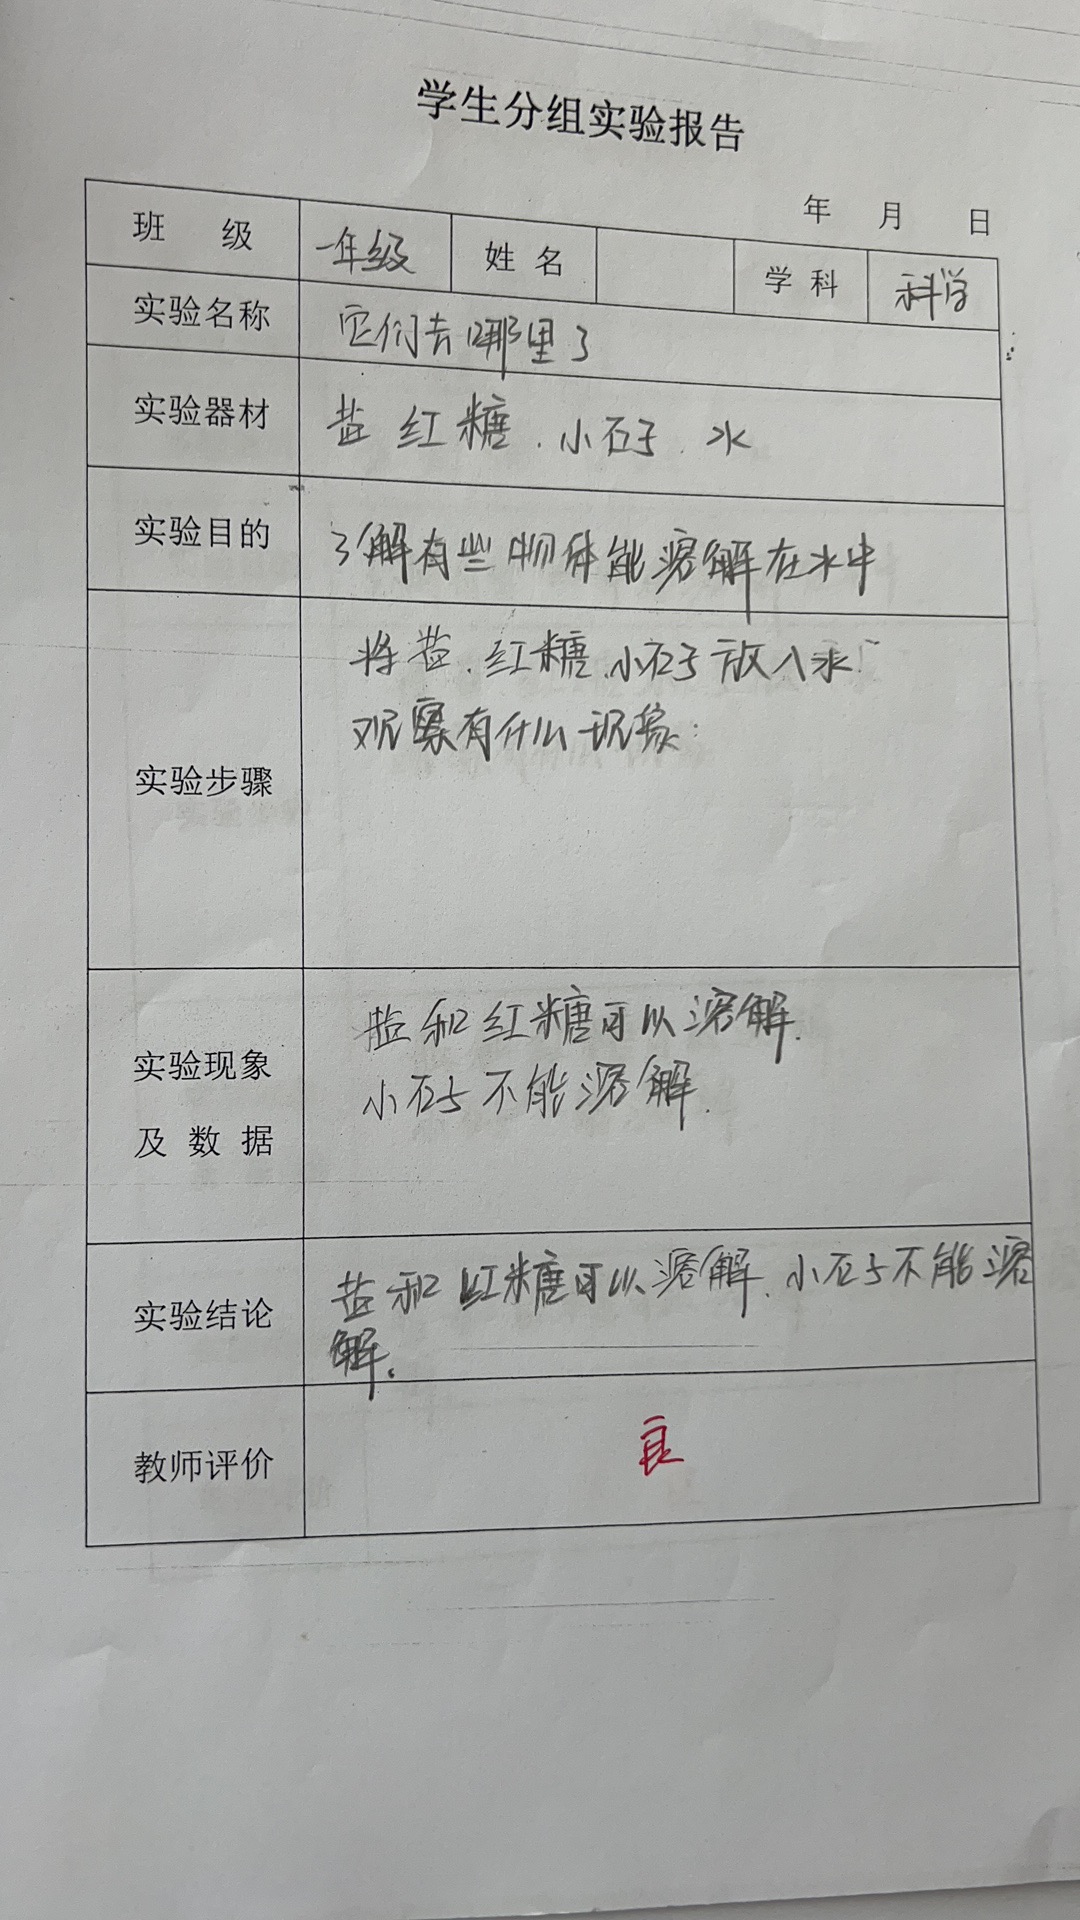 学生分组实验报告
年 月 日
班 级 一年级 姓名 学科 科学
实验名称 它们去哪里了
实验器材 盐 红糖、小石子、水
实验目的 了解有些物体能溶解在水中
实验步骤
将盐、红糖、小石子放入水
观察有什么现象:
实验现象
及数据
盐和红糖可以溶解.
小石子不能溶解.
实验结论
盐和红糖可以溶解、小石子不能溶
解.
教师评价 良